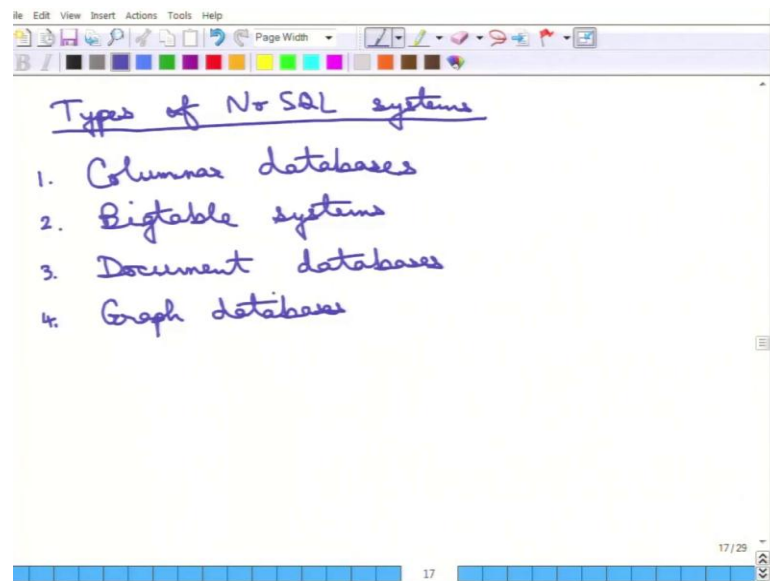 ile Edit View Insert Actions Tools Help
Page Width
B I
Types of NoSQL systems
1. Columnar databases
2. Bigtable systems
3. Document databases
4. Graph databases
17/29
17